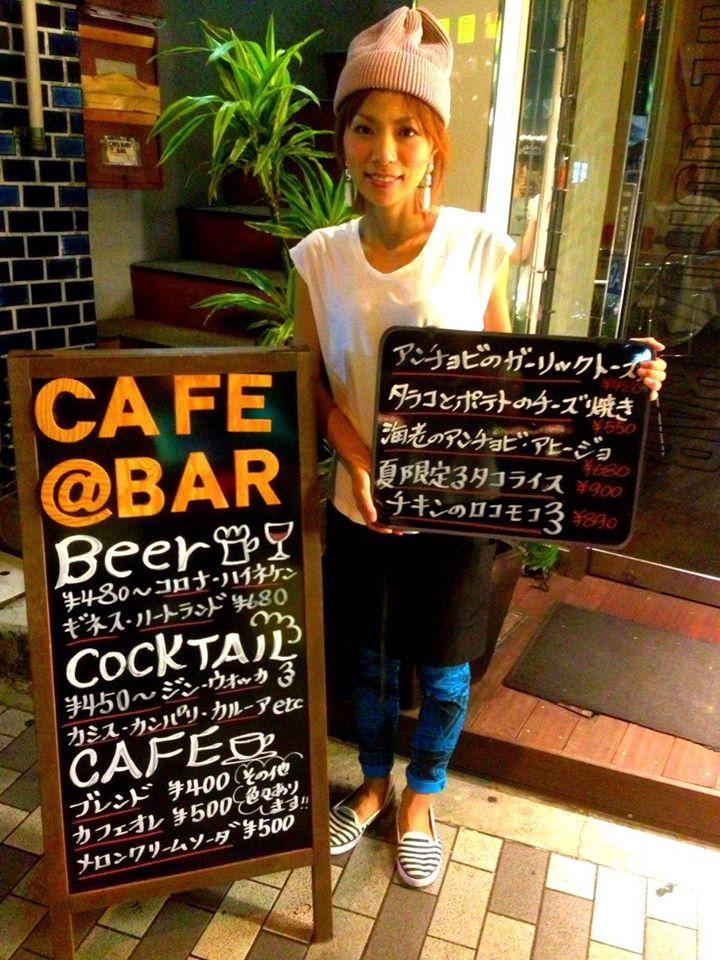 CAFE
@BAR
Beer
¥480〜コロナ・ハイネケン
ギネス・ハートランド ¥680
COCKTAIL
¥450〜ジン・ウォッカ
カシス・カンパリ・カルーア etc
CAFE
ブレンド ¥400
カフェオレ ¥500
メロンクリームソーダ ¥500
その他
色々あり
します!!
アンチョビのガーリックトース
タラコとポテトのチーズ焼き
¥550
海老のアンチョビ・アヒージョ
¥680
夏限定タコライス ¥900
チキンのロコモコ ¥890